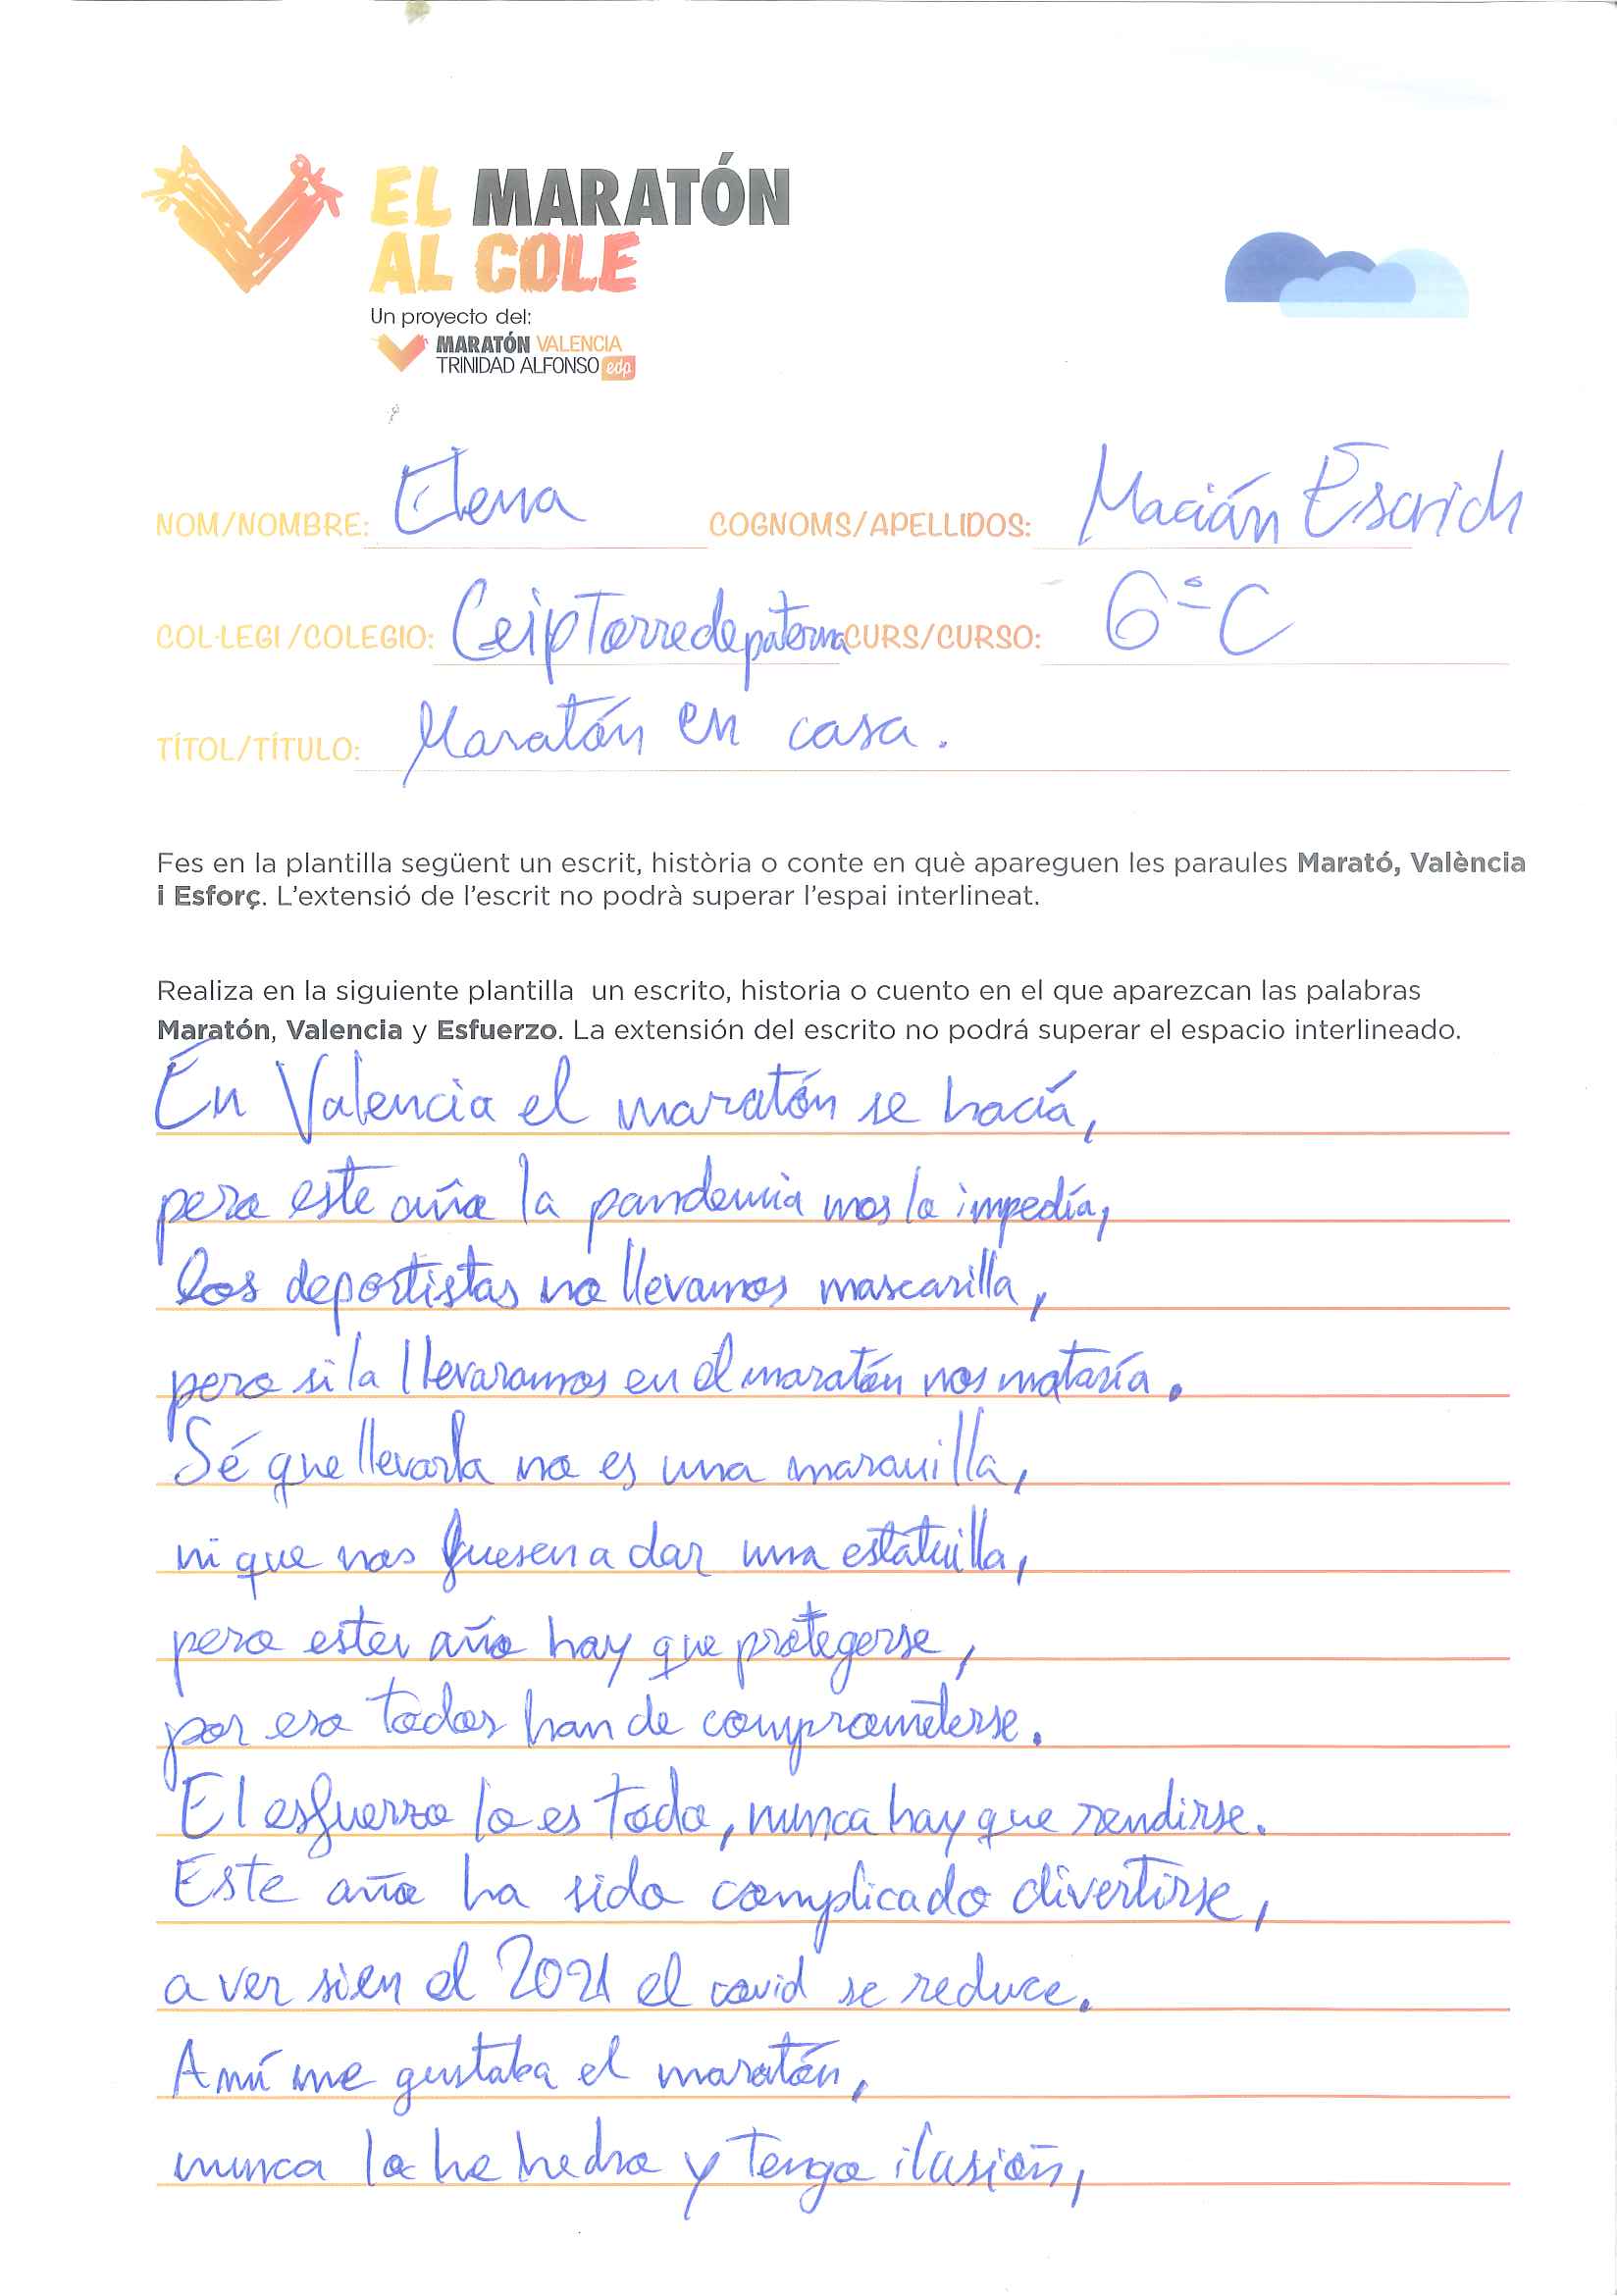 EL MARATÓN
AL COLE
Un proyecto del:
MARATÓN VALENCIA
TRINIDAD ALFONSO edp
NOM/NOMBRE: Elena COGNOMS/APELLIDOS: Macián Escrich
COL·LEGI/COLEGIO: Ceip Torre de paterna CURS/CURSO: 6º C
TÍTOL/TÍTULO: Maratón en casa.
Fes en la plantilla següent un escrit, història o conte en què apareguen les paraules Marató, València
i Esforç. L'extensió de l'escrit no podrà superar l'espai interlineat.
Realiza en la siguiente plantilla un escrito, historia o cuento en el que aparezcan las palabras
Maratón, Valencia y Esfuerzo. La extensión del escrito no podrá superar el espacio interlineado.
En Valencia el maratón se hacía,
pero este año la pandemia nos lo impedía,
los deportistas no llevamos mascarilla,
pero si la llevaramos en el maratón nos mataría.
Sé que llevarla no es una maravilla,
ni que nos fuesen a dar una estatuilla,
pero este año hay que protegerse,
por eso todos han de comprometerse.
El esfuerzo lo es todo, nunca hay que rendirse.
Este año ha sido complicado divertirse,
a ver si en el 2021 el covid se reduce.
A mí me gustaba el maratón,
nunca lo he hecho y tengo ilusión,